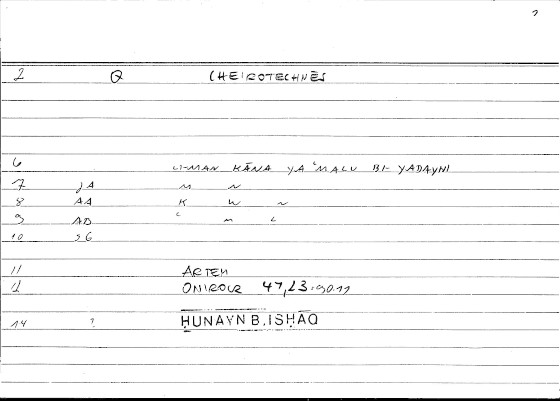 2 Q CHEIROTECHNĒS
6 LI-MAN KĀNA YAʿMALU BI-YADAYHI
7 JA M N
8 AA K W N
9 AD ʿ M L
10 SG
11 ARTEM
ONIROCR 47,23
14 ? ḤUNAYN B. ISḤĀQ